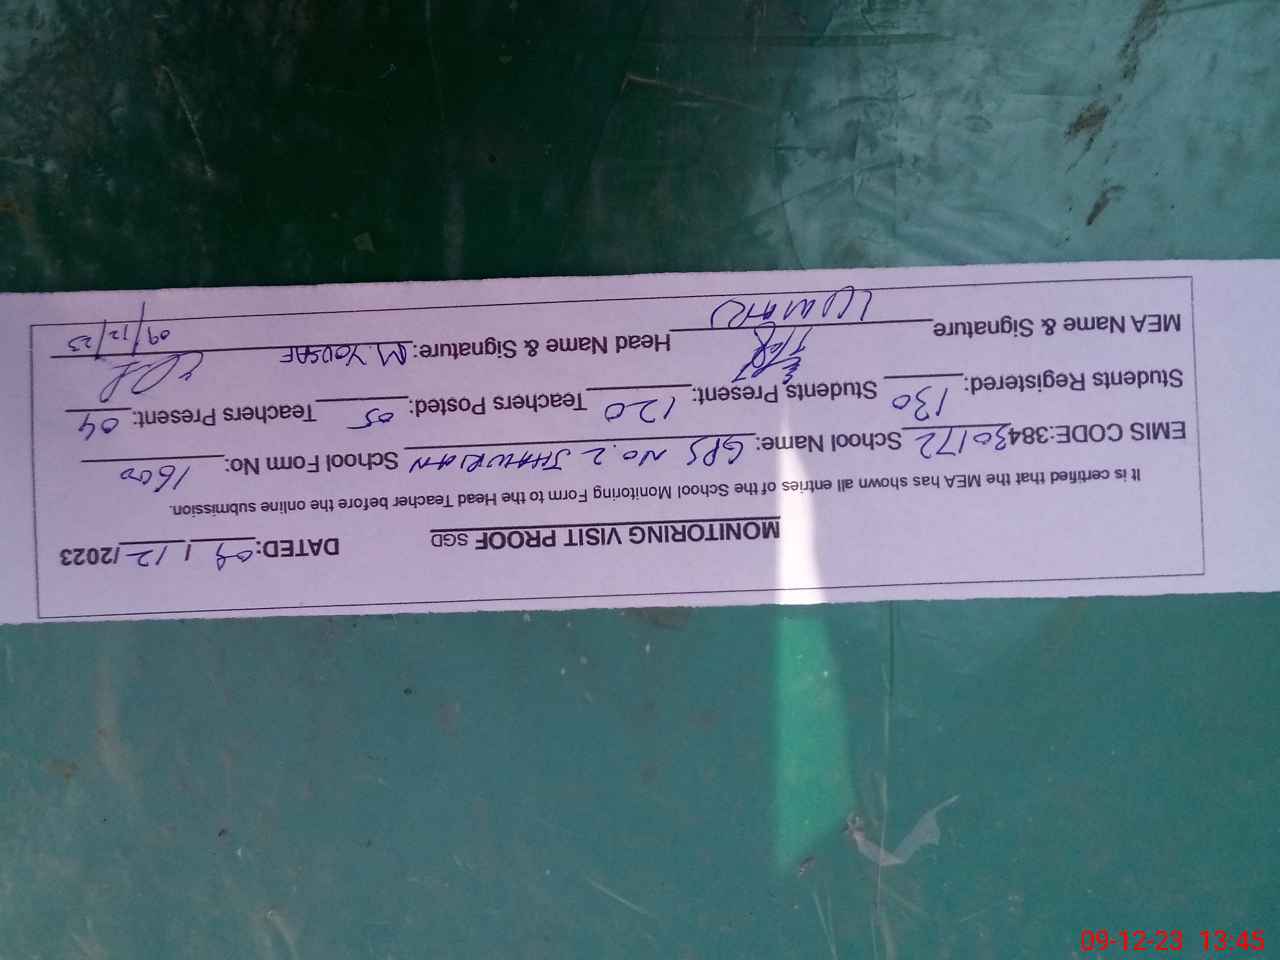 MONITORING VISIT PROOF SGD DATED: 09 / 12 /2023
It is certified that the MEA has shown all entries of the School Monitoring Form to the Head Teacher before the online submission.
EMIS CODE:38430172 School Name: GPS NO.2 JHAWRIAN School Form No: 1600
Students Registered: 130 Students Present: 120 Teachers Posted: 05 Teachers Present: 04
MEA Name & Signature Head Name & Signature: M. YOUSAF
09/12/23
09-12-23 13:45